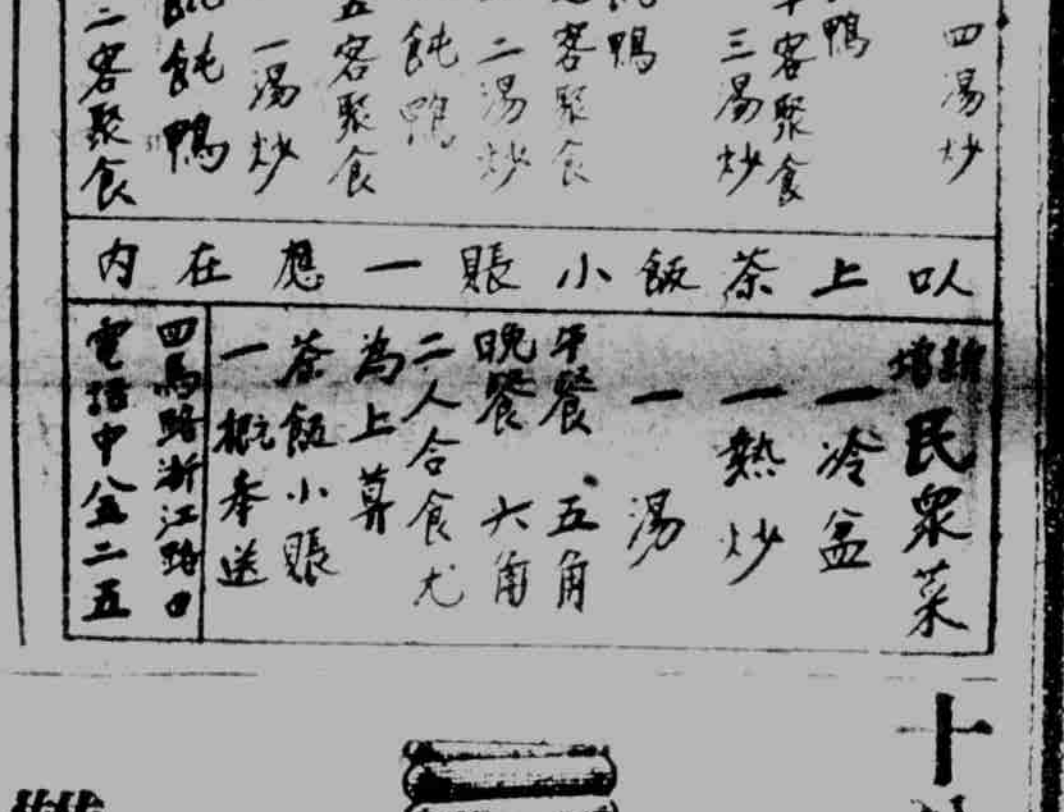 四湯炒
鴨
客聚食
三湯炒
鴨
客聚食
二湯炒
飩鴨
五客聚食
一湯炒
飩鴨
二客聚食
以上茶飯小賬一應在內
新增民眾菜
一冷盆
一熱炒
一湯
午餐 五角
晚餐 六角
二人合食尤
為上算
茶飯小賬
一概奉送
四馬路浙江路口
電話中二五
十